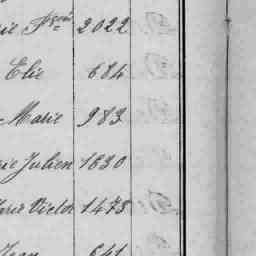 rie Fçois 2022
Elie 684
Marie 983
rie Julien 1630
Marie Victor 1473
Jean 641